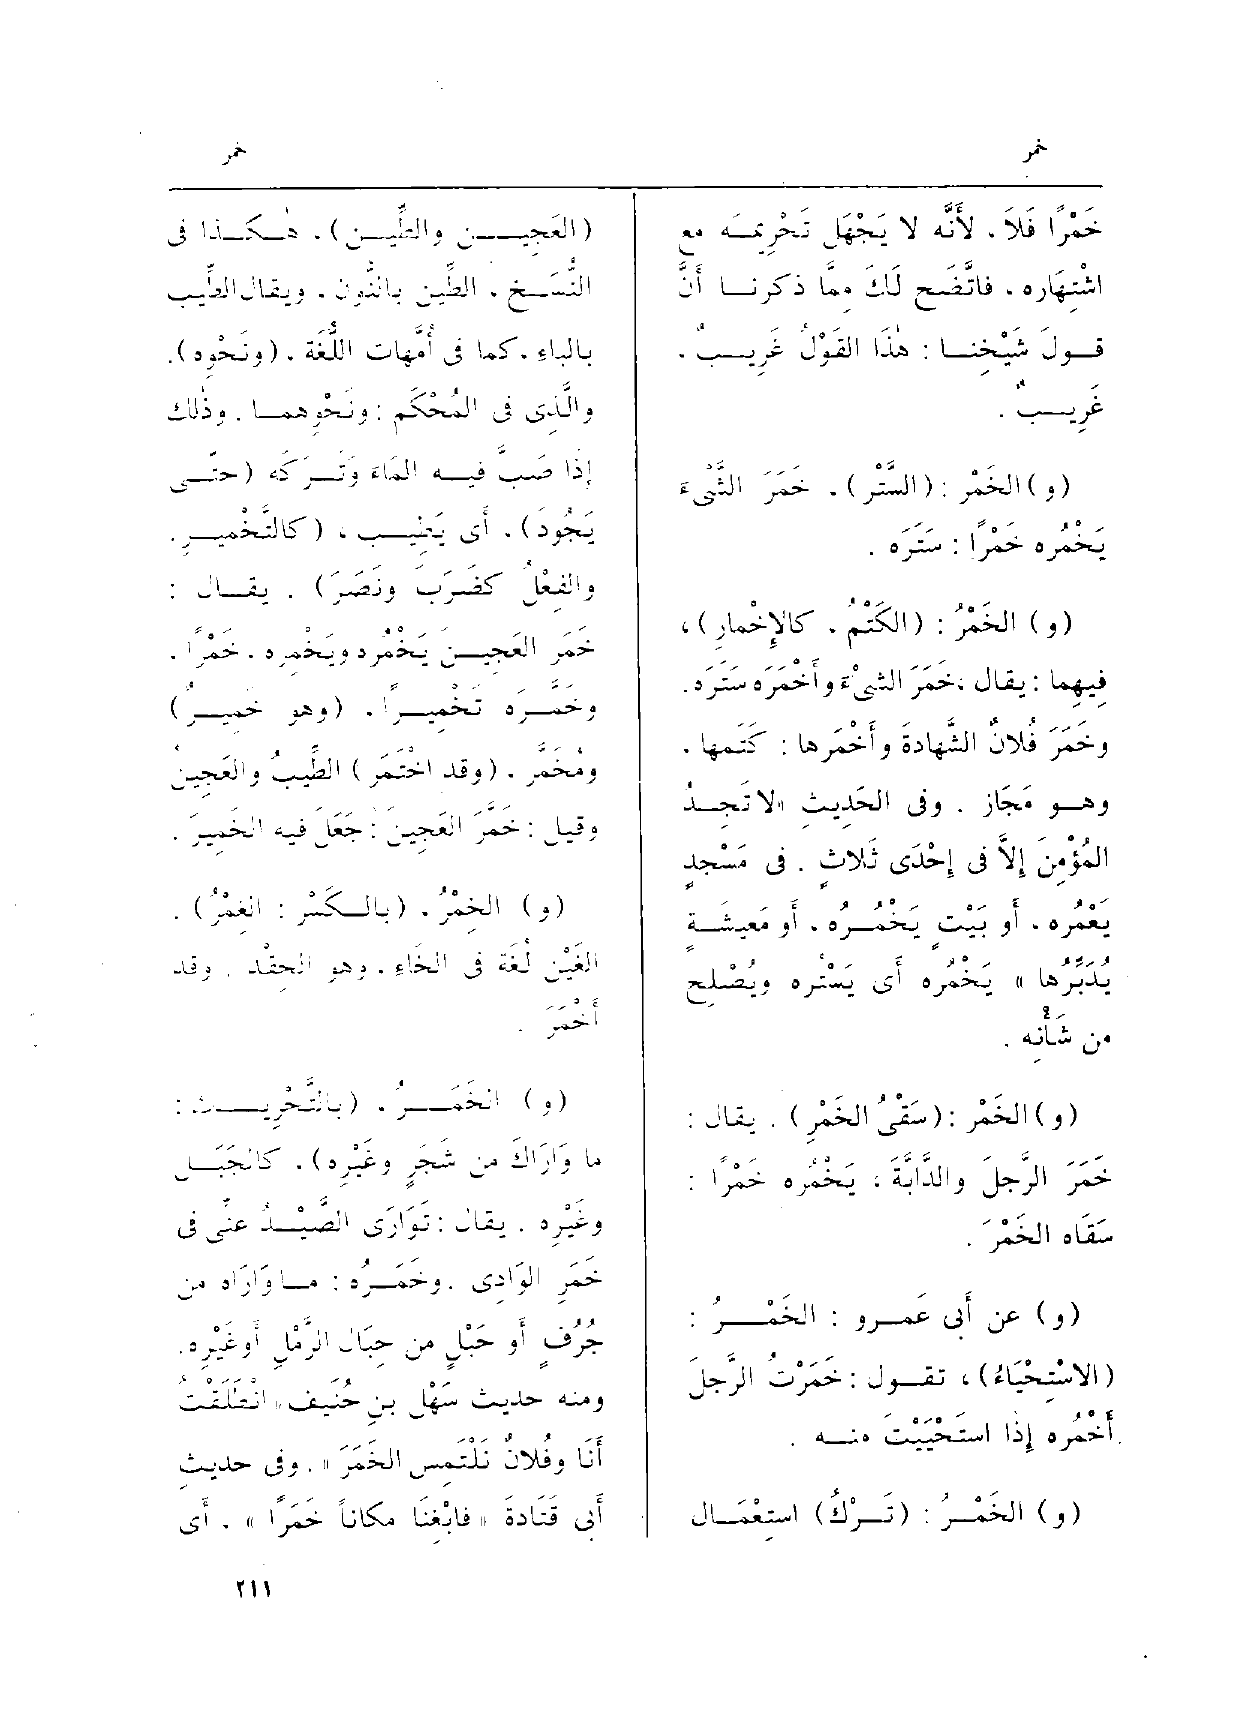 خمر
خمر
خَمْرًا فَلَا، لأَنَّه لا يَجْهَل تَحْرِيمَــه مع
اشْتِهَارِه . فاتَّضَح لَكَ ممَّا ذكرنــا أَنَّ
قــولَ شَيْخِنــا : هٰذا القَوْلُ غَرِيــبٌ .
غَرِيــب .
(و) الخَمْر : (السَّتْر) . خَمَرَ الشَّيْءَ
يَخْمُره خَمْرًا : سَتَرَه .
(و) الخَمْرُ : (الكَتْمُ . كالإِخْمارِ) ،
فِيهِما : يقال ، خَمَرَ الشيْءَ وأَخْمَرَه سَتَرَه.
وخَمَرَ فُلَانٌ الشَّهادَةَ وأَخْمَرها : كَتَمها .
وهــو مَجَاز . وفى الحَدِيث «لا تَجِــدُ
المُؤْمِنَ إِلَّا فى إِحْدَى ثَلَاثٍ . فى مَسْجِدٍ
يَعْمُره ، أَو بَيْتٍ يَخْمُــرُه ، أَو مَعِيشَــةٍ
يُدَبِّرُها » يَخْمُره أَى يَسْتُره ويُصْلِح
من شَأْنِه .
(و) الخَمْر : (سَقْىُ الخَمْرِ) . يقال :
خَمَرَ الرَّجلَ والدَّابَّةَ ، يَخْمُره خَمْرًا :
سَقَاه الخَمْرَ .
(و) عن أَبى عَمــرو : الخَمْــرُ :
(الاسْتِحْيَاءُ) ، تقــول : خَمَرْتُ الرَّجلَ
أَخْمُره إِذَا استَحْيَيْت منــه .
(و) الخَمْــرُ : (تَــرْكُ) استِعْمَــال
(العَجِيــن والطِّيــن) . هٰــكــذا فى
النُّسَــخ . الطِّين بالنُّون . ويقال الطِّيب
بالباءِ . كما فى أُمَّهات اللُّغَة . (ونَحْوِه).
والَّذِى فى المُحْكَم : ونَحْوِهمــا . وذٰلك
إِذا صَبَّ فيــه الماءَ وَتَــرَكَه (حتّــى
يَجُودَ) . أَى يَطِيــب ، (كالتَّخْمِيــرِ.
والفِعْلُ كضَرَبَ ونَصَرَ) . يقــال :
خَمَرَ العَجِيــن يَخْمُره ويَخْمِره . خَمْرًا .
وخَمَّــره تَخْمِيــرًا . (وهو خَمِيــرٌ)
ومُخَمَّر . (وقد اخْتَمَر) الطِّيبُ والعَجِينُ
وقيل : خَمَّرَ العَجِينَ : جَعَلَ فيه الخَمِيرَ .
(و) الخِمْرُ . (بالــكَسْر : الغِمْرُ) .
الغَيْن لُغَة فى الخَاءِ . وهو الحِقْد . وقد
أَخْمَرَ .
(و) الخَمَــرُ . (بالتَّحْرِيــك :
ما وَارَاكَ من شَجَرٍ وغَيْرِه) . كالجَبَــلِ
وغَيْرِه . يقال : تَوَارَى الصَّيْــدُ عنّى فى
خَمَرِ الوَادِى . وخَمَــرُه : مــا وَارَاه من
جُرُفٍ أَو حَبْلٍ من حِبَال الرَّمْلِ أَو غَيْرِه.
ومنه حديث سَهْل بنِ حُنَيف « انْطَلَقْتُ
أَنَا وفُلَانٌ نَلْتَمِس الخَمَرَ » . وفى حديث
أَبى قَتَادَةَ « فابْغِنَا مكاناً خَمَرًا » . أَى
٢١١